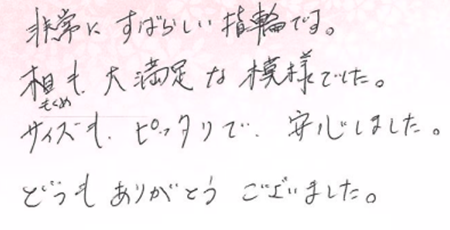 非常に すばらしい指輪です。
杢も、大満足な模様でした。
もくめ
サイズも、ピッタリで、安心しました。
どうもありがとうございました。